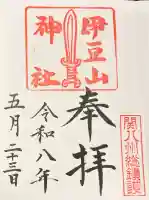 伊豆山
神社
奉拝
令和八年
五月二十三日
関八州総鎮護